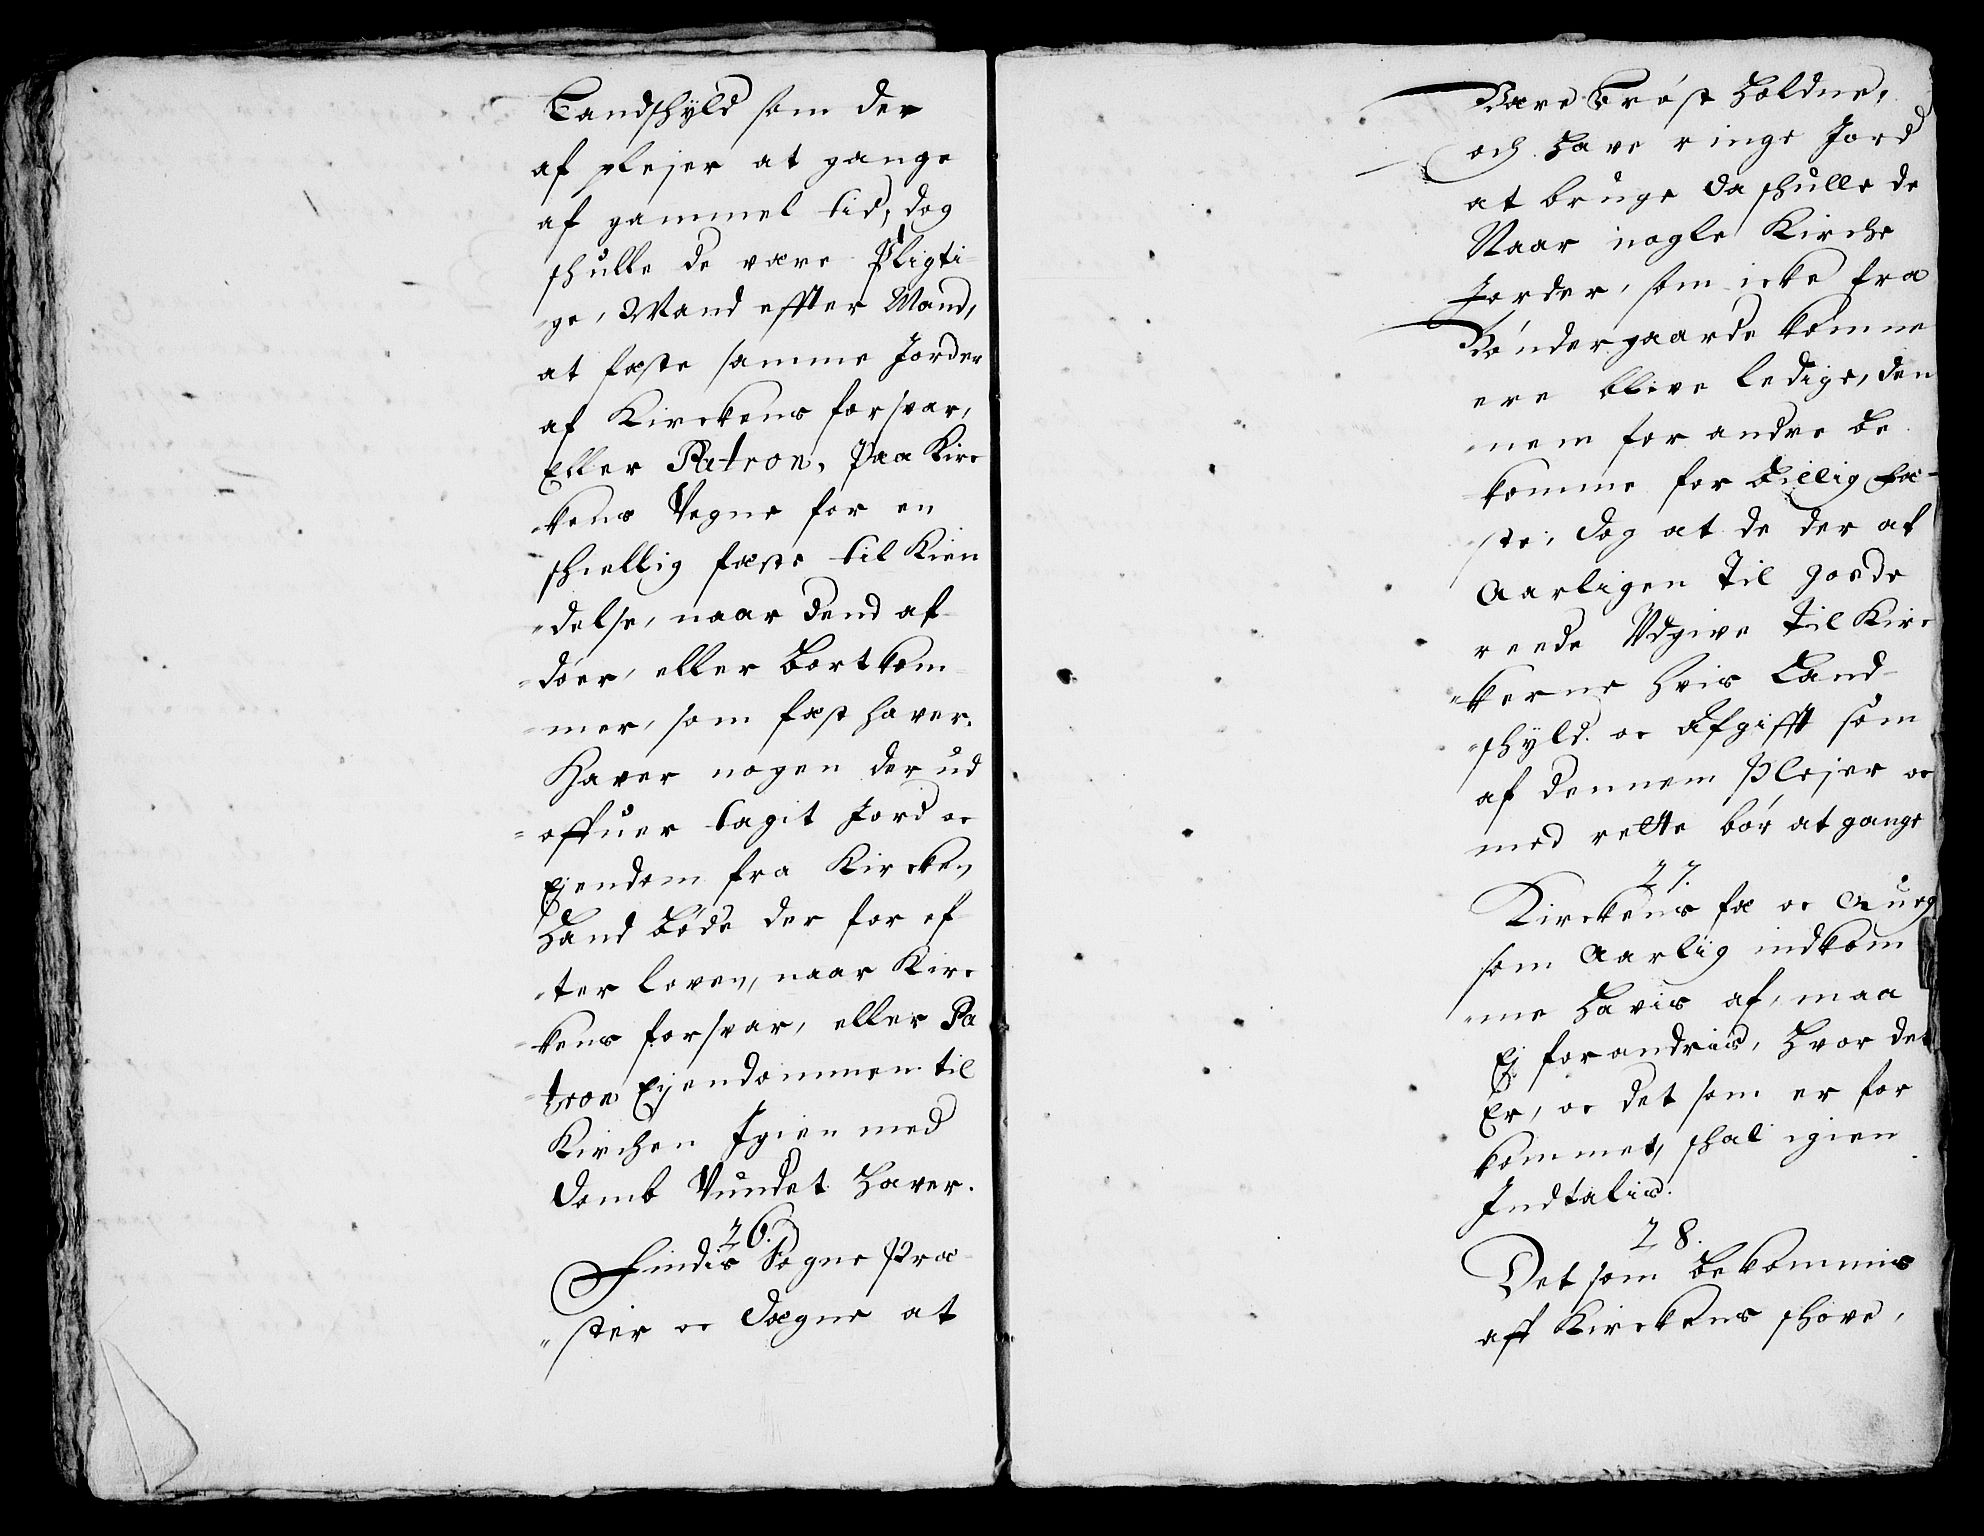 Landskyld som der
af plejer at gange
af gammel tid, dog
skulle de være Pligti-
ge, Mand effter Mand,
at fæste samme Jorder
af Kirckens forsvar,
Eller Patron, Paa Kirc
kens Vegne for en
skiellig fæste til Kien
delse, naar dend af-
döer, eller bortkom
mer, som fæst haver.
Haver nogen der ud
offuer tagit Jord oc
Ejendom fra Kircken,
Hand böde der for ef
ter loven, naar Kirc
kens forsvar, eller Pa
tron Eyendommen til
Kirchen Igien med
Domb Vundet haver.
26.
Findis Sogne Præ-
ster oc Degne at
Være bröst holdne,
och have ringe Jord
at bruge da skulle de
Naar nogle Kirche
Jorder, som icke fra
Böndergaarde komne
ere blive ledige, den
nem for andre be
komme for billig fæ-
ste, dog at de der af
Aarligen til goede
reede Udgive til Kirc
kerne hvis Land-
skyld oc Afgifft som
af dennem Plejer oc
med rette bör at gange
27.
Kirckens fæ oc Queg
som Aarlig indkom
me havis af, maa
Ej forandris, hvor det
Er, oc det som er for
kommet, skal igien
Indtalis.
28.
Det som bekommis
aff Kirckens skove,